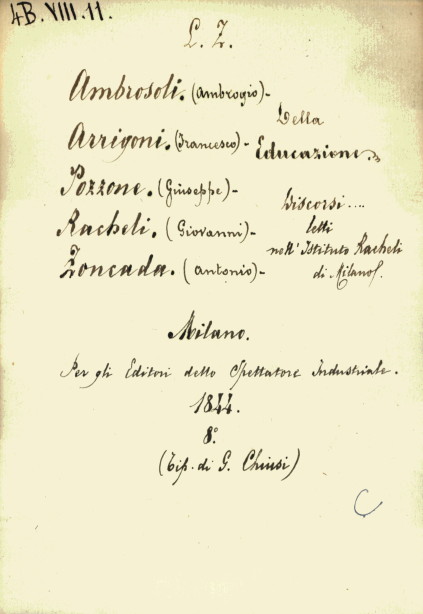 4B. VIII. 11.
L. Z.
Ambrosoli. (Ambrogio)-
Arrigoni. (Francesco)-
Pozzone. (Giuseppe)-
Racheli. (Giovanni)-
Zoncada. (Antonio)-
Della
Educazione.
Discorsi....
letti
nell'Istituto Racheli
di Milano.
Milano.
Per gli Editori dello Spettatore Industriale.
1844.
8º.
(Tip. di G. Chiusi)
C